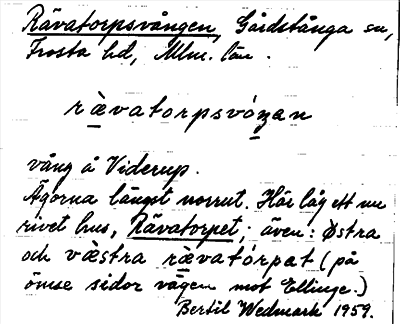 Rävatorpsvången, Gårdstånga sn,
Frosta hd, Mlm. län.
rævatorpsvóŋan
vång å Viderup.
Ägorna längst norrut. Här låg ett nu
rivet hus, Rävatorpet; även: Østra
och væstra rævatórpat (på
ömse sidor vägen mot Ellinge.)
Bertil Wedmark 1959.